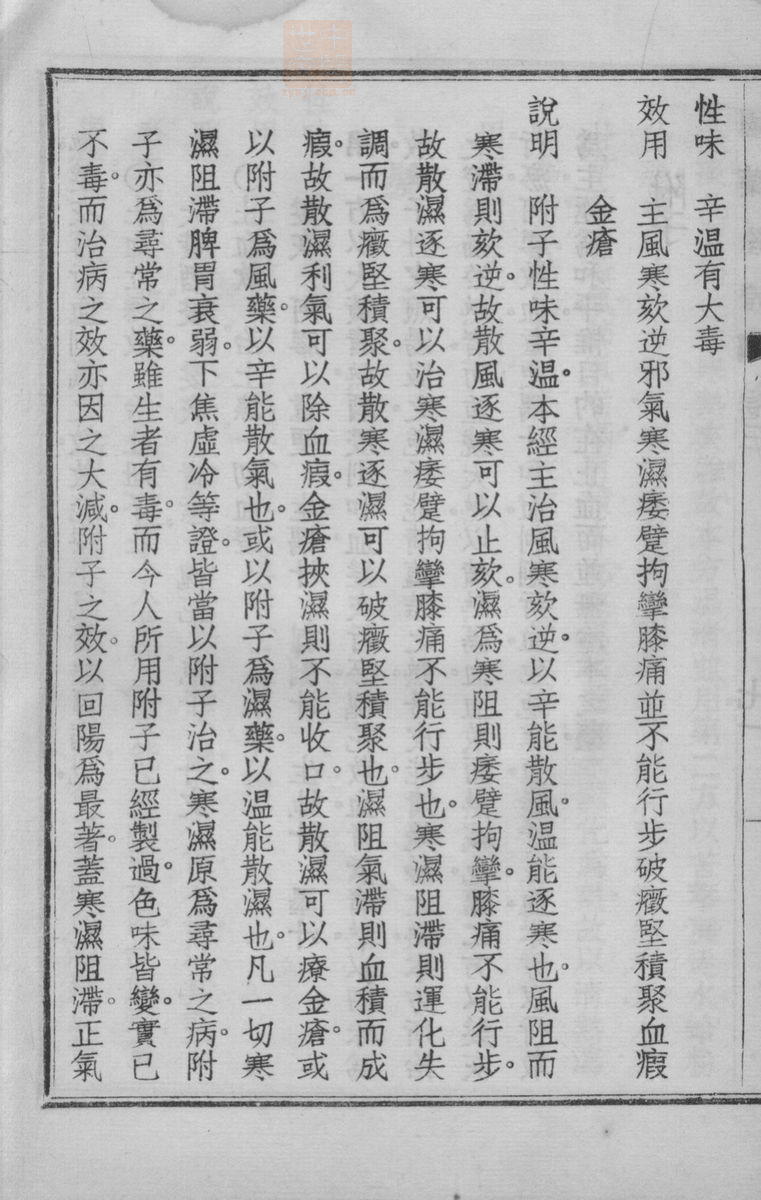 性味　辛温有大毒
效用　主風寒欬逆邪氣寒濕痿躄拘攣膝痛並不能行步破癥堅積聚血瘕
金瘡
說明　附子性味辛温。本經主治風寒欬逆。以辛能散風。温能逐寒也。風阻而
寒滯則欬逆。故散風逐寒可以止欬。濕爲寒阻則痿躄拘攣。膝痛不能行步。
故散濕逐寒可以治寒濕痿躄拘攣膝痛不能行步也。寒濕阻滯則運化失
調而爲癥堅積聚。故散寒逐濕可以破癥堅積聚也。濕阻氣滯則血積而成
瘕。故散濕利氣可以除血瘕。金瘡挾濕則不能收口。故散濕可以療金瘡。或
以附子爲風藥。以辛能散氣也。或以附子爲濕藥。以温能散濕也。凡一切寒
濕阻滯脾胃衰弱。下焦虛冷等證。皆當以附子治之。寒濕原爲尋常之病。附
子亦爲尋常之藥。雖生者有毒。而今人所用附子已經製過。色味皆變。實已
不毒。而治病之效亦因之大減。附子之效。以回陽爲最著。蓋寒濕阻滯。正氣